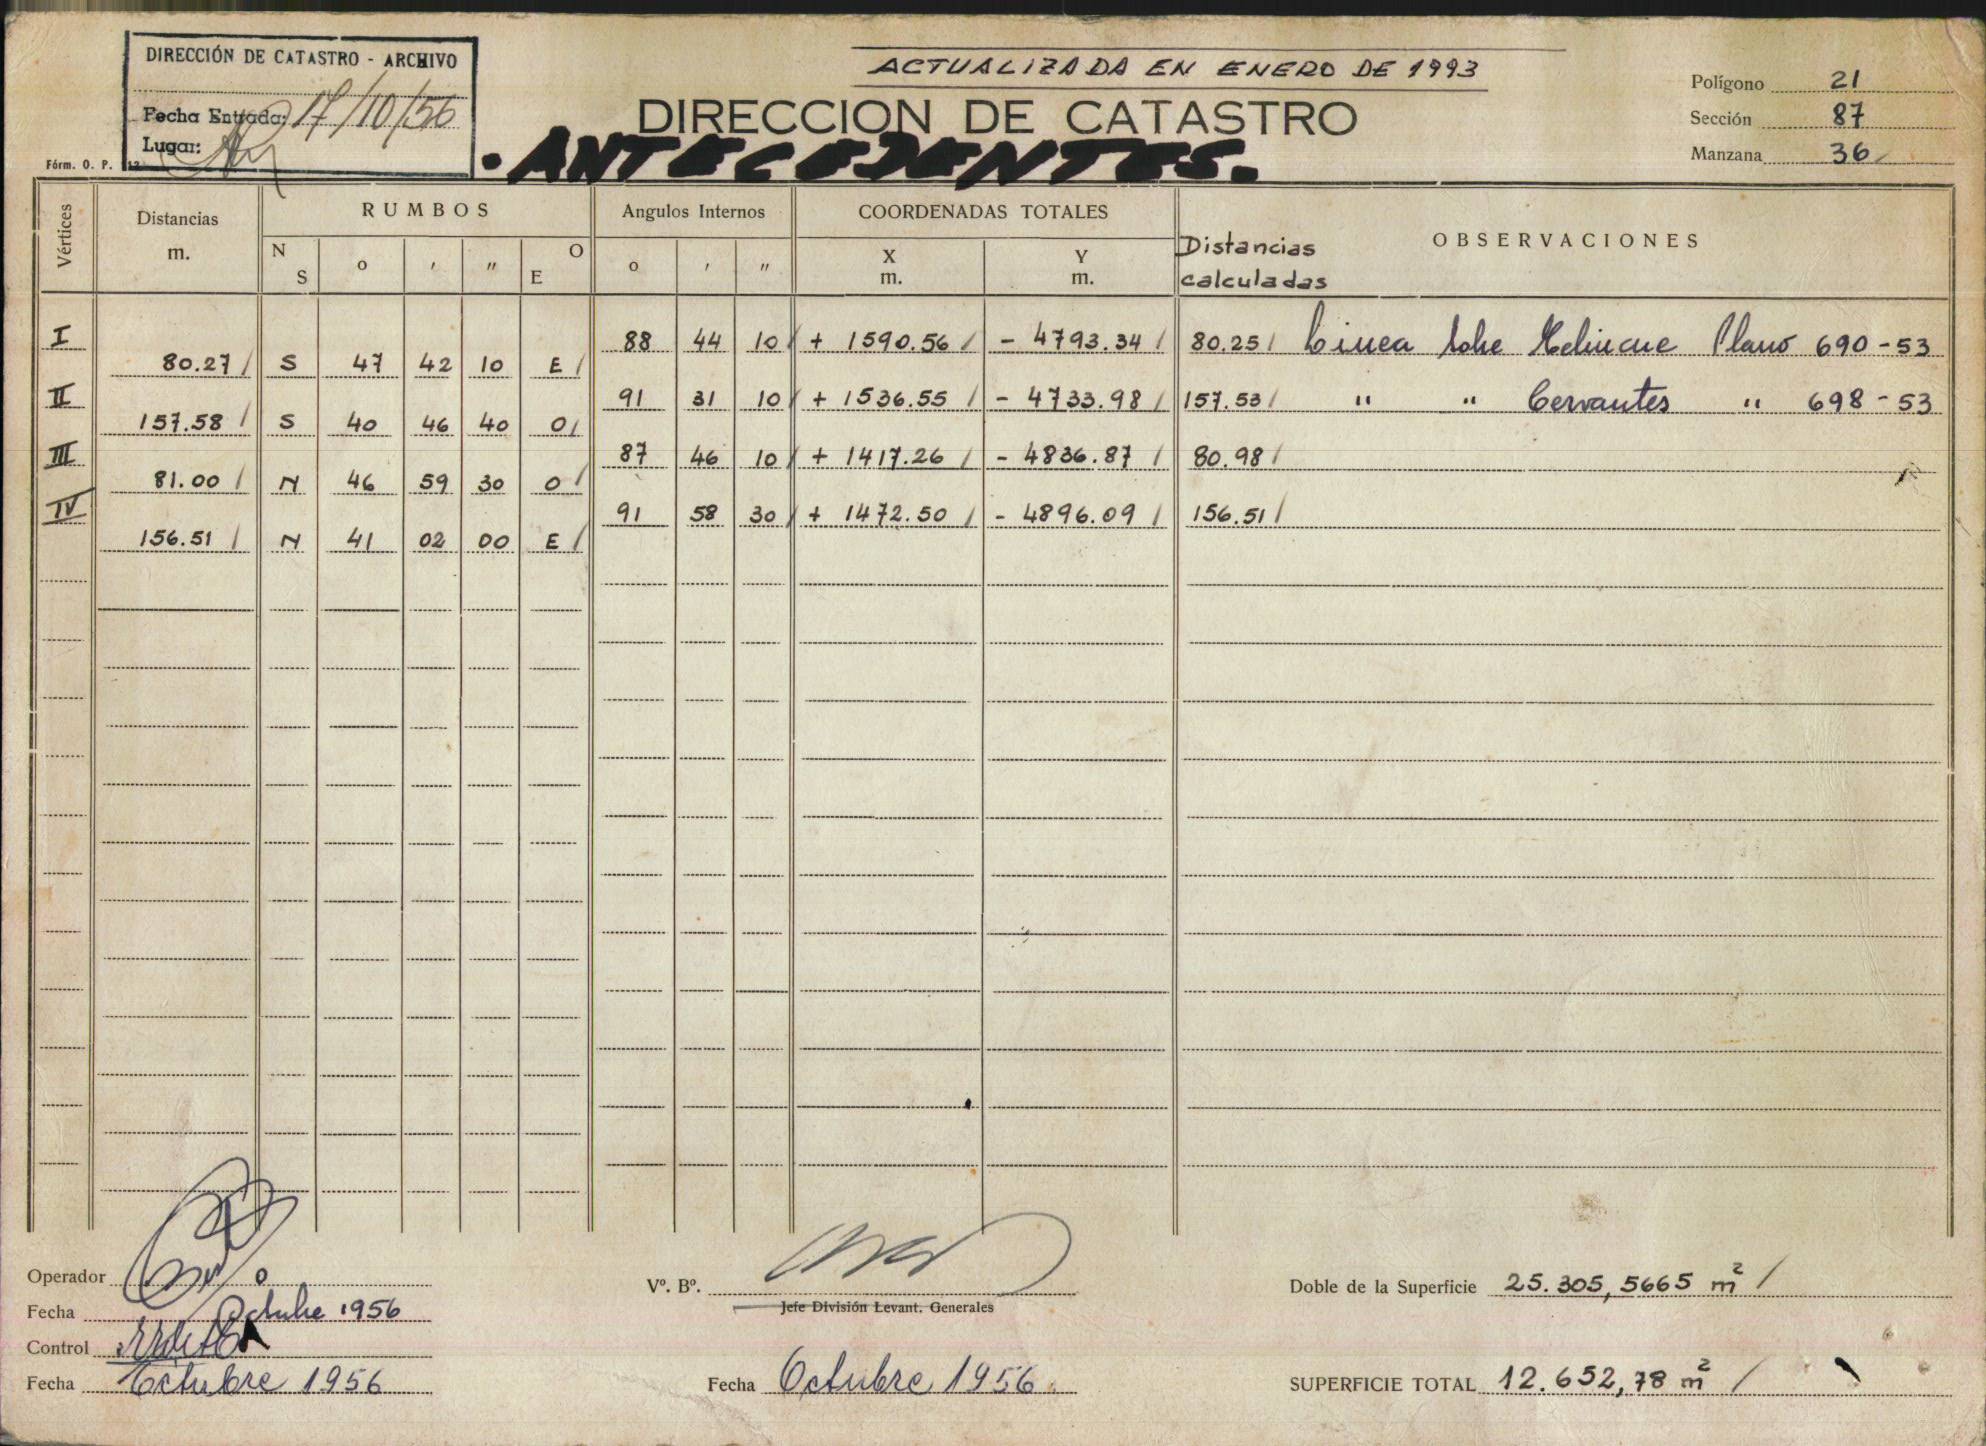 DIRECCIÓN DE CATASTRO - ARCHIVO
Fecha Entrada: 17/10/56
Lugar:
Fórm. O. P.
ACTUALIZADA EN ENERO DE 1993
DIRECCION DE CATASTRO
. ANTECEDENTES.
Polígono 21
Sección 87
Manzana 36
Vértices Distancias m. RUMBOS Angulos Internos COORDENADAS TOTALES Distancias calculadas OBSERVACIONES
N S o ' " O E o ' " X m. Y m.
I 88 44 10 + 1590.56 - 4793.34 80.25 Linea sobre Melincue Plano 690-53
80.27 S 47 42 10 E
II 91 31 10 + 1536.55 - 4733.98 157.53 " " Cervantes " 698-53
157.58 S 40 46 40 O
III 87 46 10 + 1417.26 - 4836.87 80.98
81.00 N 46 59 30 O
IV 91 58 30 + 1472.50 - 4896.09 156.51
156.51 N 41 02 00 E
Operador
Fecha Octubre 1956
Control
Fecha Octubre 1956
Vº. Bº.
Jefe División Levant. Generales
Fecha Octubre 1956
Doble de la Superficie 25.305,5665 m²
SUPERFICIE TOTAL 12.652,78 m²